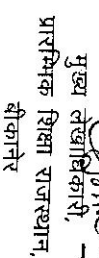 मुख्य लेखाधिकारी,
प्रारम्भिक शिक्षा राजस्थान,
बीकानेर